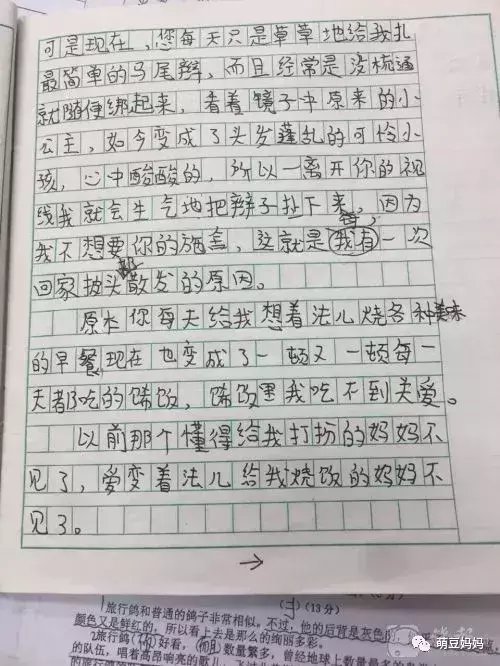 可是现在，您每天只是草草地给我扎
最简单的马尾辫，而且经常是没梳通
就随便绑起来，看着镜子中原来的小
公主，如今变成了头发蓬乱的可怜小
孩，心中酸酸的，所以一离开你的视
线我就会生气地把辫子扯下来，因为
我不想要你的施舍，这就是我有一次
回家披头散发的原因。
原本你每天给我想着法儿烧各种美味
的早餐现在也变成了一顿又一顿每一
天都吃的馊饭，馊饭里我吃不到关爱。
以前那个懂得给我打扮的妈妈不
见了，爱变着法儿给我烧饭的妈妈不
见了。
(13分)
旅行鸽和普通的鸽子非常相似。不过，他的后背是灰色的，
颜色又是鲜红的，所以看上去是那么的绚丽多彩。
2旅行鸽
好看，
数量繁多，曾经地球上数量
的队伍，唱着高昂响亮的歌儿，
萌豆妈妈